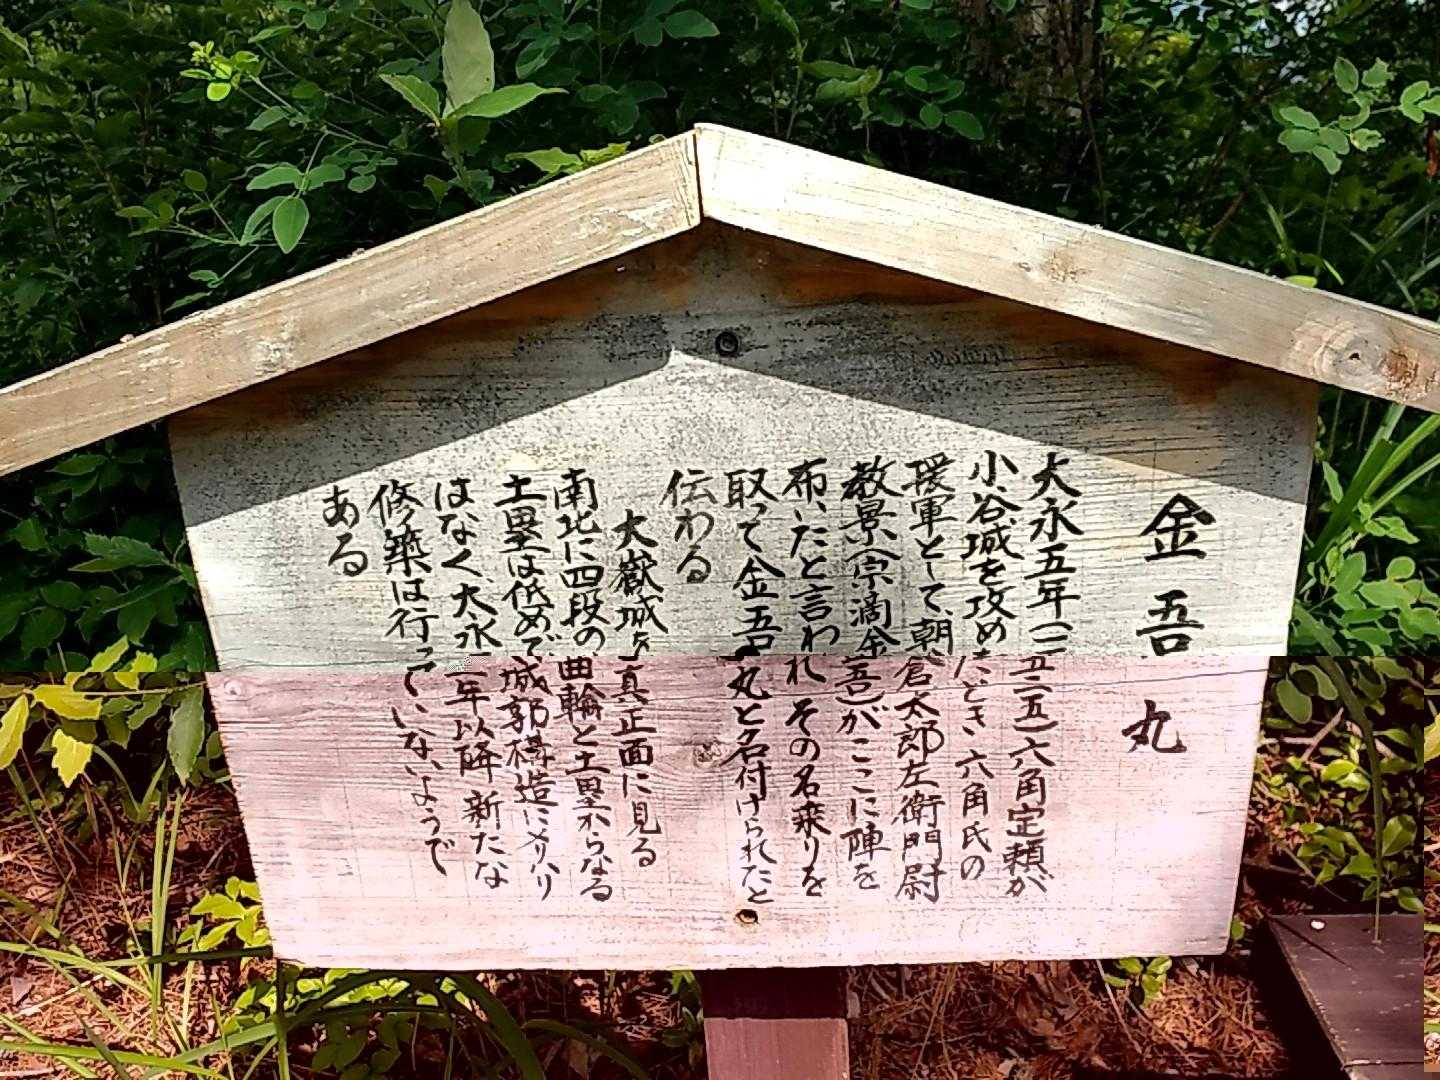 金吾丸
大永五年（一五二五）六角定頼が
小谷城を攻めたとき六角氏の
援軍として、朝倉太郎左衛門尉
教景（宗滴金吾）がここに陣を
布いたと言われその名乗りを
取って金吾丸と名付けられたと
伝わる
大嶽城を真正面に見る
南北に四段の曲輪と土塁からなる
土塁は低めで城郭構造にメリハリ
はなく、大永 年以降新たな
修築は行っていないようで
ある